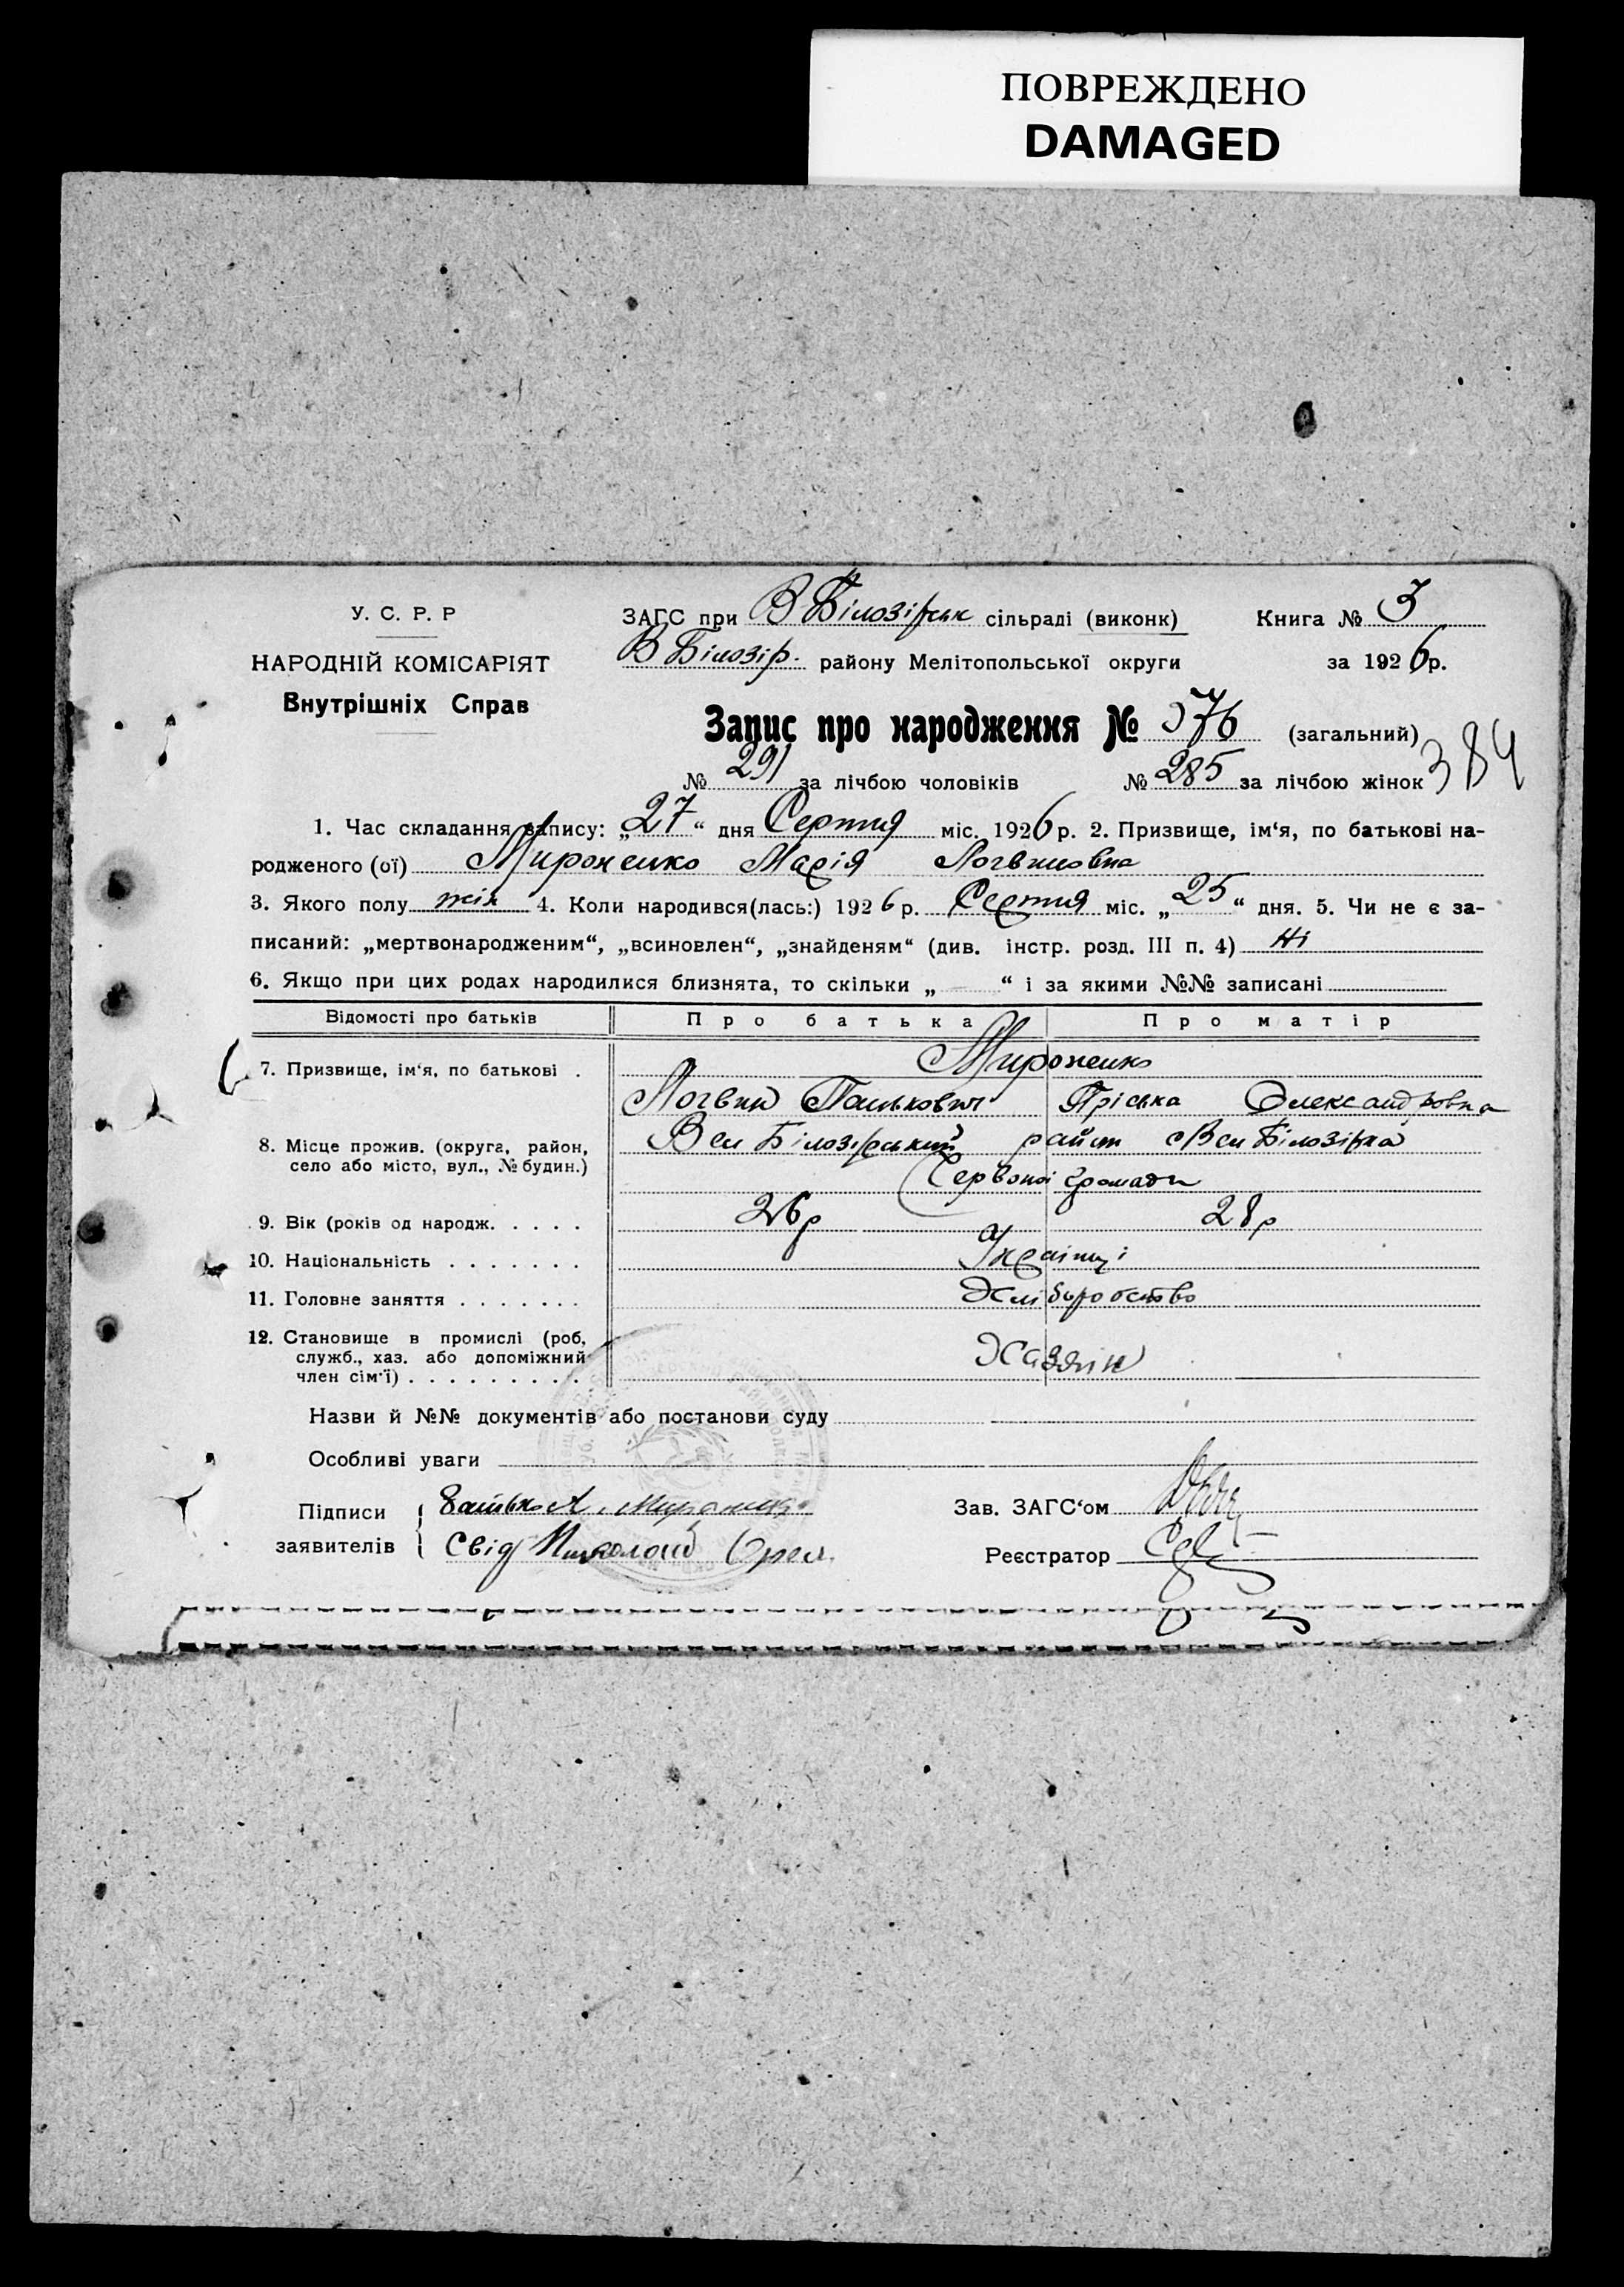 ПОВРЕЖДЕНО
DAMAGED
У. С. Р. Р
НАРОДНІЙ КОМІСАРІЯТ
Внутрішніх Справ
ЗАГС при В-Білозірськ сільраді (виконк) Книга № 3
В Білозір. району Мелітопольської округи за 1926 р.
Запис про народження № 576 (загальний)
№ 291 за лічбою чоловіків № 285 за лічбою жінок 384
1. Час складання запису: „27“ дня Серпня міс. 1926 р. 2. Призвище, ім‘я, по батькові на-
родженого (ої) Мироненко Марія Логвиновна
3. Якого полу жін 4. Коли народився(лась:) 1926 р. Серпня міс. „25“ дня. 5. Чи не є за-
писаний: „мертвонародженим“, „всиновлен“, „знайденям“ (див. інстр. розд. III п. 4) Ні
6. Якщо при цих родах народилися близнята, то скільки „ “ і за якими №№ записані
Відомості про батьків Про батька Про матір
7. Призвище, ім‘я, по батькові . Мироненко
Логвин Панькович Пріська Олександровна
8. Місце прожив. (округа, район, село або місто, вул., № будин.) Вел Білозірський район Вел Білозірка
Червоної громади
9. Вік (років од народж. . . . . 26 р 28 р
10. Національність . . . . . . . Українці
11. Головне заняття . . . . . . . Хліборобство
12. Становище в промислі (роб, служб., хаз. або допоміжний член сім‘ї) . . . . . . . . . Хазяїн
Назви й №№ документів або постанови суду
Особливі уваги
Підписи заявителів Батько Л. Мироненко
Свід Николай Орел
Зав. ЗАГС‘ом
Реєстратор